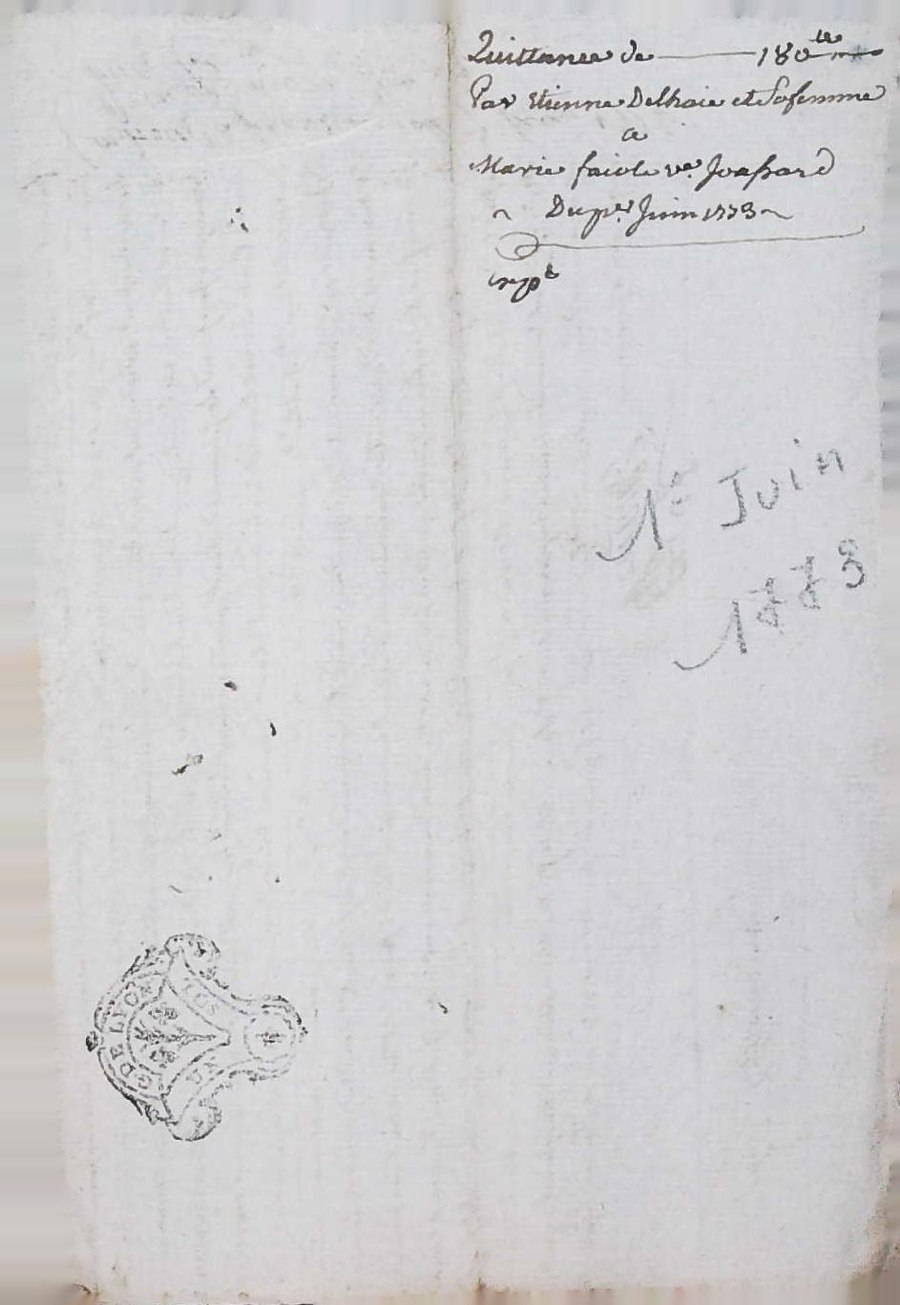 Quittance de 180 ᵗᵗ
Par Etienne Delhaie et Sa femme
a
Marie faiole vᵉ Joassard
Du pᵉʳ Juin 1773
expᵉ
1ᵉ Juin
1773
G DE LYON